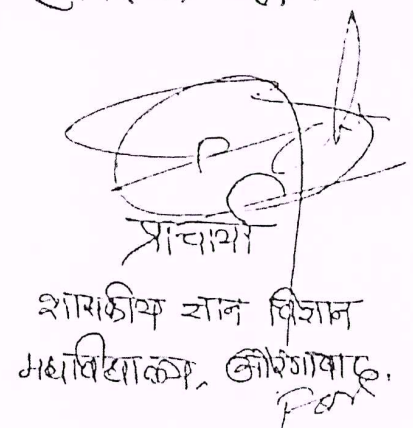 प्राचार्य
शासकीय ज्ञान विज्ञान
महाविद्यालय, औरंगाबाद.